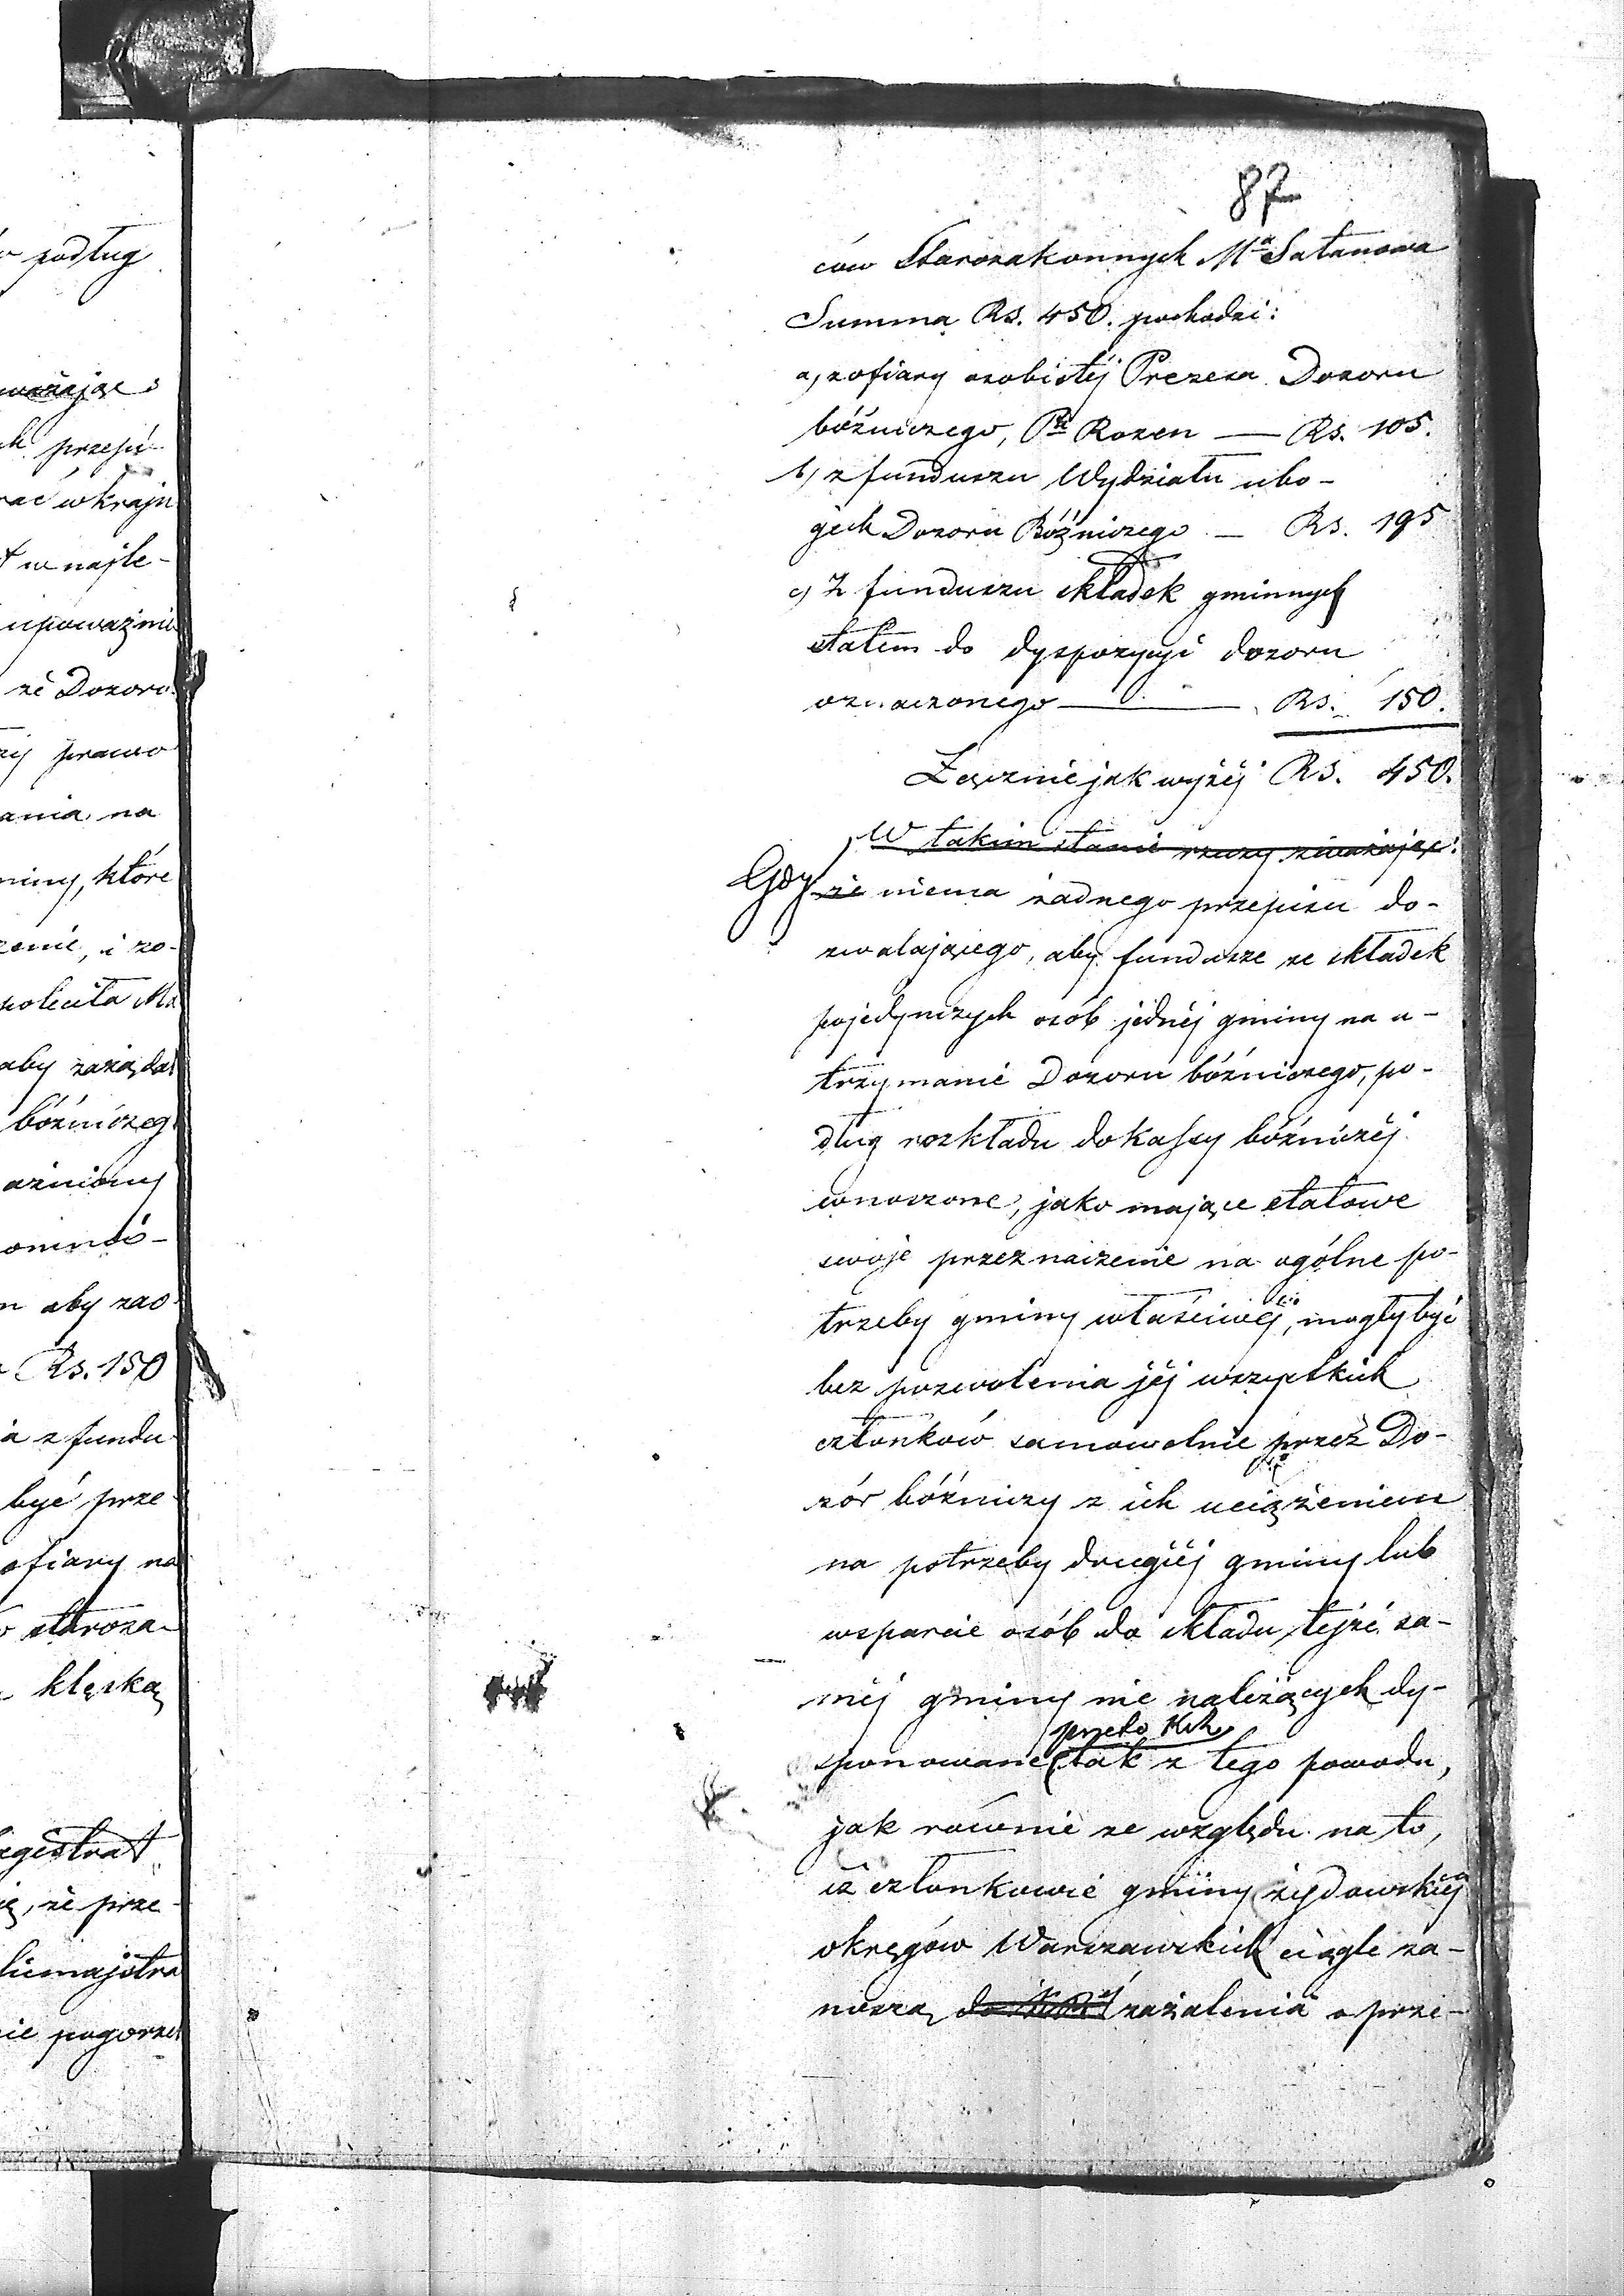 87
ców Starozakonnych Mta Satanowa
Summa Rs. 450. pochodzi:
a, z ofiary osobistéj Prezesa Dozoru
bóżniczego, Pa Rozen — Rs. 105.
b, z funduszu Wydziału ubo-
gich Dozoru Bóżniczego — Rs. 195
c, Z funduszu składek gminnych
etatem do dyspozycyi dozoru
oznaczonego — Rs. 150.
Łącznie jak wyżéj Rs. 450.
W takim stanie rzeczy zważając:
Gdy że niema żadnego przepisu do-
zwalającego, aby fundusze ze składek
pojedynczych osób jednéj gminy na u-
trzymanie Dozoru bóżniczego, po-
dług rozkładu do Kassy bóżniczéj
wnoszone, jako mające etatowe
swoje przeznaczenie na ogólne po-
trzeby gminy właściwéj, mogły być
bez pozwolenia jéj wszystkich
członków samowolnie przez Do-
zór bóżniczy z ich uciążeniem
na potrzeby drugiéj gminy lub
wsparcie osób do składu tejże sa-
méj gminy nie należących dy-
przeto
sponowane tak z tego powodu,
jak równie ze względu na to,
iż członkowie gminy żydowskiéj
okręgów Warszawskich ciągle za-
noszą do zażalenia o prze-
podług
uważając
przepi-
rać w kraju
w najle-
upoważnie
że Dozoro
prawo
ania na
miny, które
zenie, i zo-
poleciła Ma
aby zażądał
bóżniczeg
aźniony
omność-
aby zao
Rs. 150
a z fundu
być prze
ofiary na
staroza-
klęską
agistrat
że prze-
licmajstra
ie pogorzel